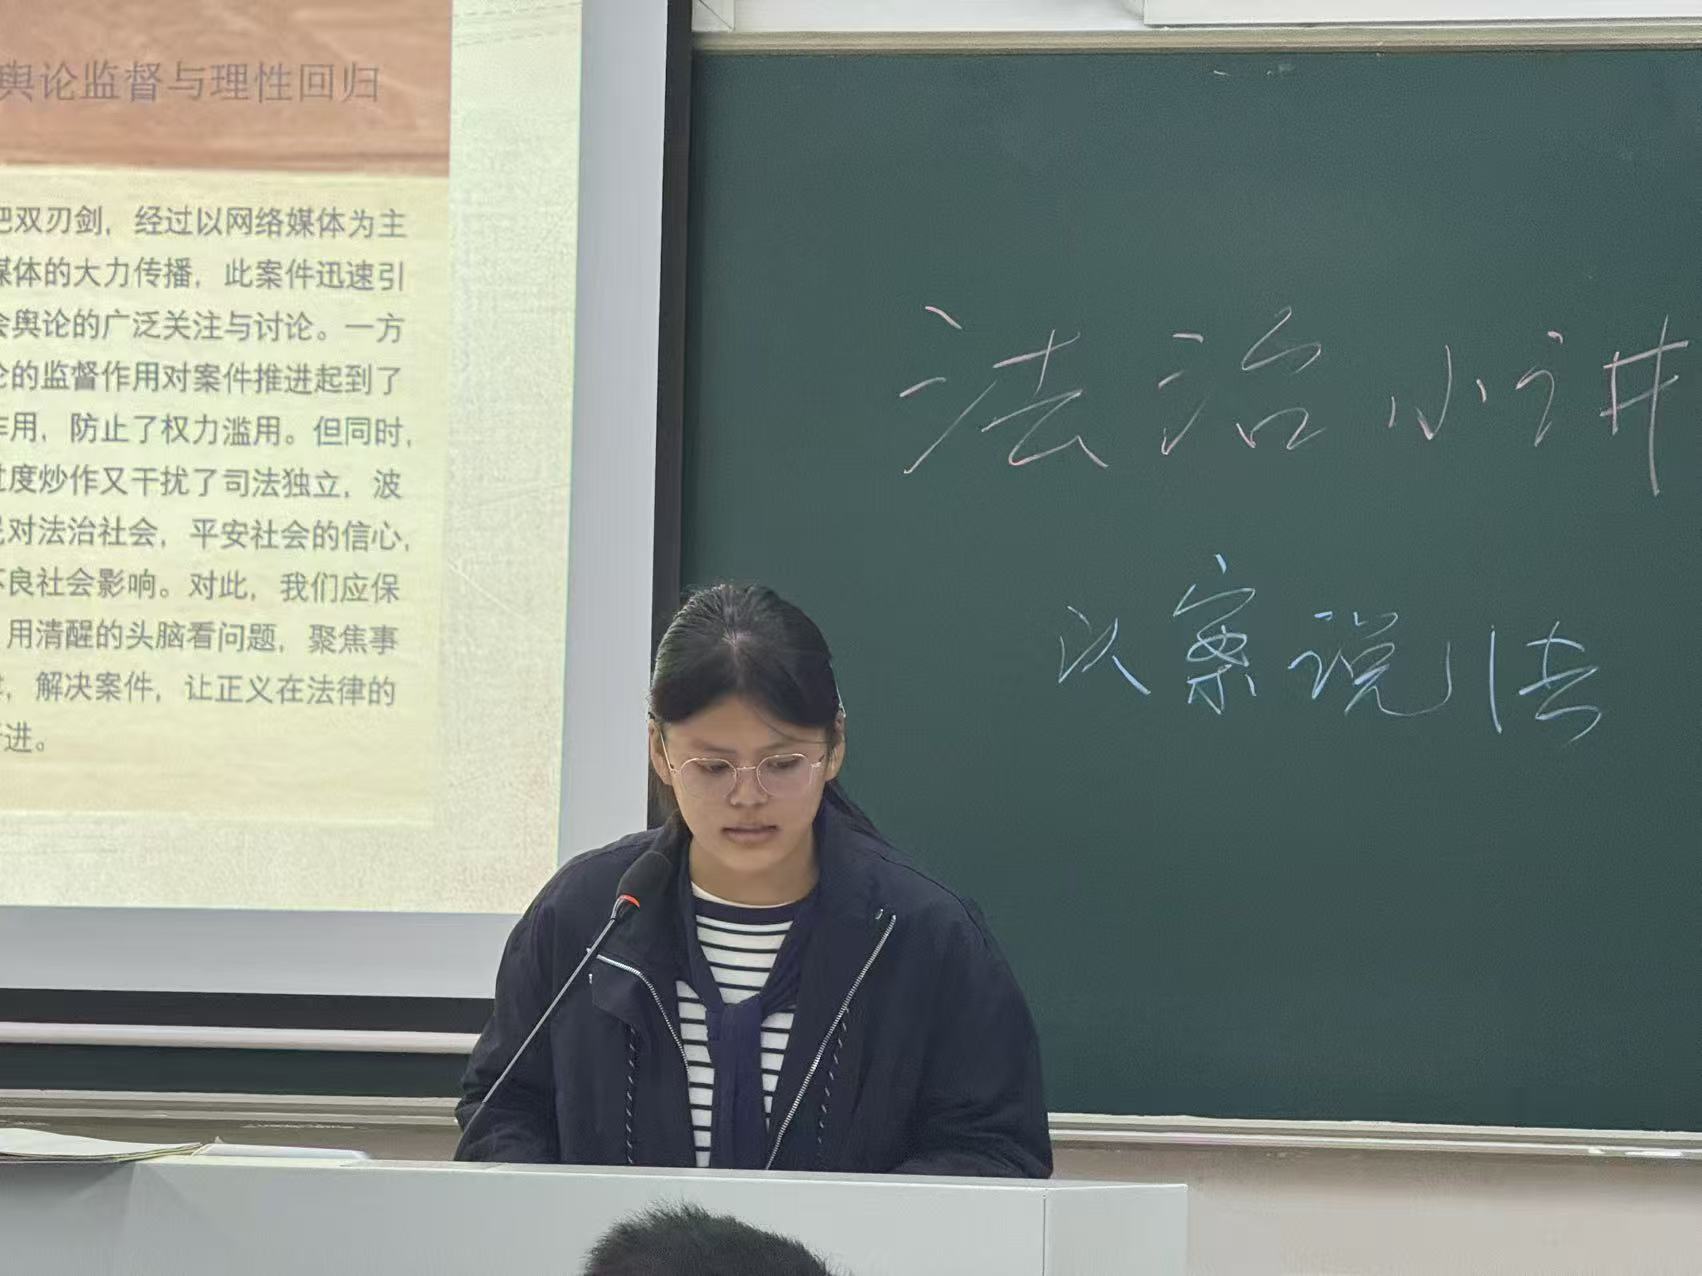 舆论监督与理性回归
把双刃剑，经过以网络媒体为主
媒体的大力传播，此案件迅速引
会舆论的广泛关注与讨论。一方
论的监督作用对案件推进起到了
作用，防止了权力滥用。但同时，
过度炒作又干扰了司法独立，波
民对法治社会，平安社会的信心，
不良社会影响。对此，我们应保
用清醒的头脑看问题，聚焦事
解决案件，让正义在法律的
进。
法治小讲
以案说法